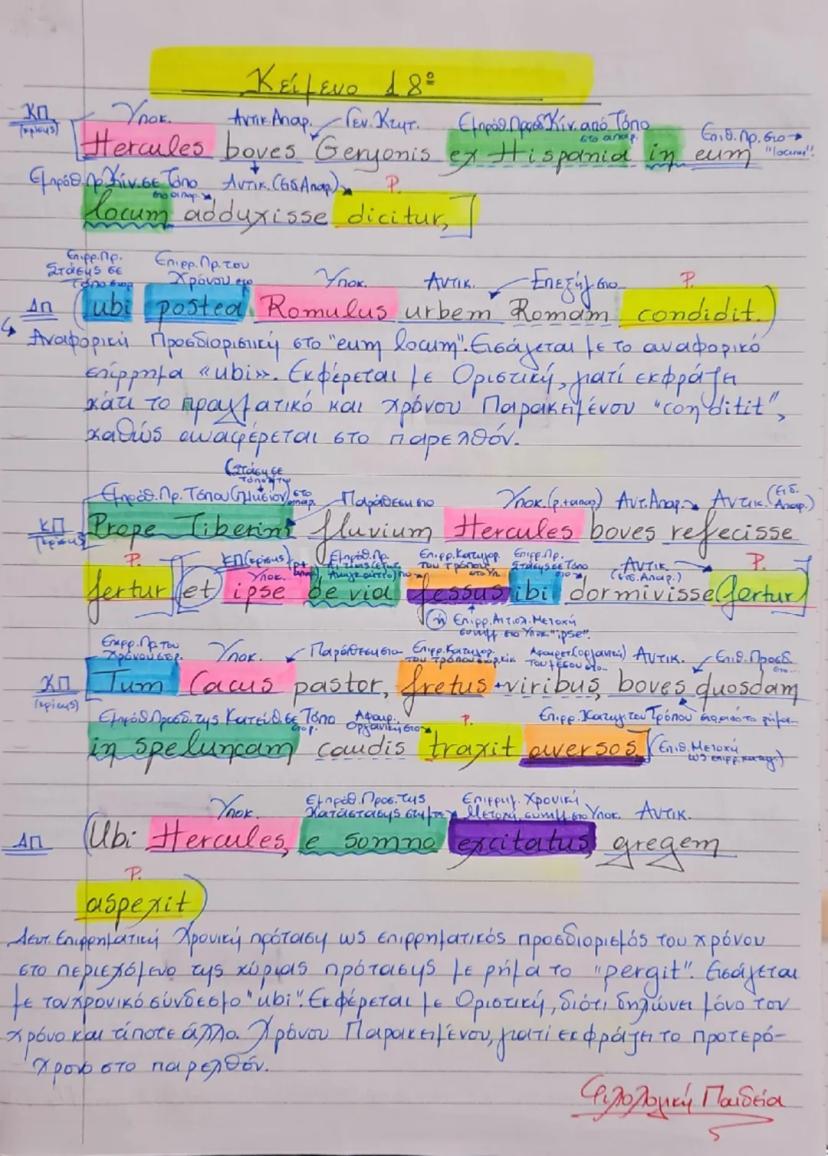 Κείμενο 18º
ΚΠ Υποκ. Αντικ. Απαρ. Γεν. Κτητ. Εμπρόθ. Προσδ. Κίν. από Τόπο στο απαρ. Επιθ. Πρ. στο → "locum"
(κρίσης) Hercules boves Geryonis ex Hispania in eum
Εμπρόθ. Πρ. Κίν. σε Τόπο στο απαρ. Αντικ. (Ειδ. Απαρ.) Ρ.
locum adduxisse dicitur,
Επιρρ. Πρ. Στάσης σε Τόπο Επιρρ. Πρ. του Χρόνου στο Υποκ. Αντικ. Επεξήγ. στο Ρ.
ΔΠ (ubi postea Romulus urbem Romam condidit.)
Αναφορική Προσδιοριστική στο "eum locum". Εισάγεται με το αναφορικό
επίρρημα «ubi». Εκφέρεται με Οριστική, γιατί εκφράζει
κάτι το πραγματικό και χρόνου Παρακειμένου "conditit",
καθώς αναφέρεται στο παρελθόν.
Εμπρόθ. Πρ. Τόπου (πλησίον) στο απαρ. Παράθεση στο Υποκ. (ρ. + απαρ) Αντ. Απαρ. Αντικ. (Ειδ. Απαρ.)
ΚΠ (κρίσης) Prope Tiberim fluvium Hercules boves refecisse
Ρ. ΚΠ (κρίσης) Υποκ. Εμπρόθ. Πρ. Επιρρ. Κατηγορ. του Τρόπου Επιρρ. Πρ. Στάσης σε Τόπο Αντικ. (ειδ. Απαρ.) Ρ.
fertur et ipse de via fessus ibi dormivisse fertur
Επιρρ. Αιτιολ. Μετοχή συνημ. στο Υποκ. "ipse".
Επιρρ. Πρ. του Χρόνου στο ρ. Υποκ. Παράθεση στο Επιρρ. Κατηγορ. του Τρόπου Αφαιρετ. (οργανική) του μέσου στο Αντικ. Επιθ. Προσδ. στο
ΚΠ (κρίσης) Tum Cacus pastor, fretus viribus, boves quosdam
Εμπρόθ. Προσδ. της Κατεύθ. σε Τόπο στο ρ. Αφαιρ. Οργανική στο Ρ. Επιρρ. Κατηγ. του Τρόπου
in speluncam caudis traxit aversos (Επιθ. Μετοχή ως επιρρ. κατηγ.)
Υποκ. Εμπρόθ. Προσ. της Κατάστασης στη μετ. Επιρρημ. Χρονική Μετοχή, συνημ. στο Υποκ. Αντικ.
ΔΠ (Ubi Hercules, e somno excitatus, gregem
Ρ.
aspexit)
Δευτ. Επιρρηματική Χρονική πρόταση ως επιρρηματικός προσδιορισμός του χρόνου
στο περιεχόμενο της κύριας πρότασης με ρήμα το "pergit". Εισάγεται
με τον χρονικό σύνδεσμο "ubi". Εκφέρεται με Οριστική, διότι δηλώνει μόνο τον
χρόνο και τίποτε άλλο. Χρόνου Παρακειμένου, γιατί εκφράζει το προτερό-
χρονο στο παρελθόν.
Φιλολογική Παιδεία